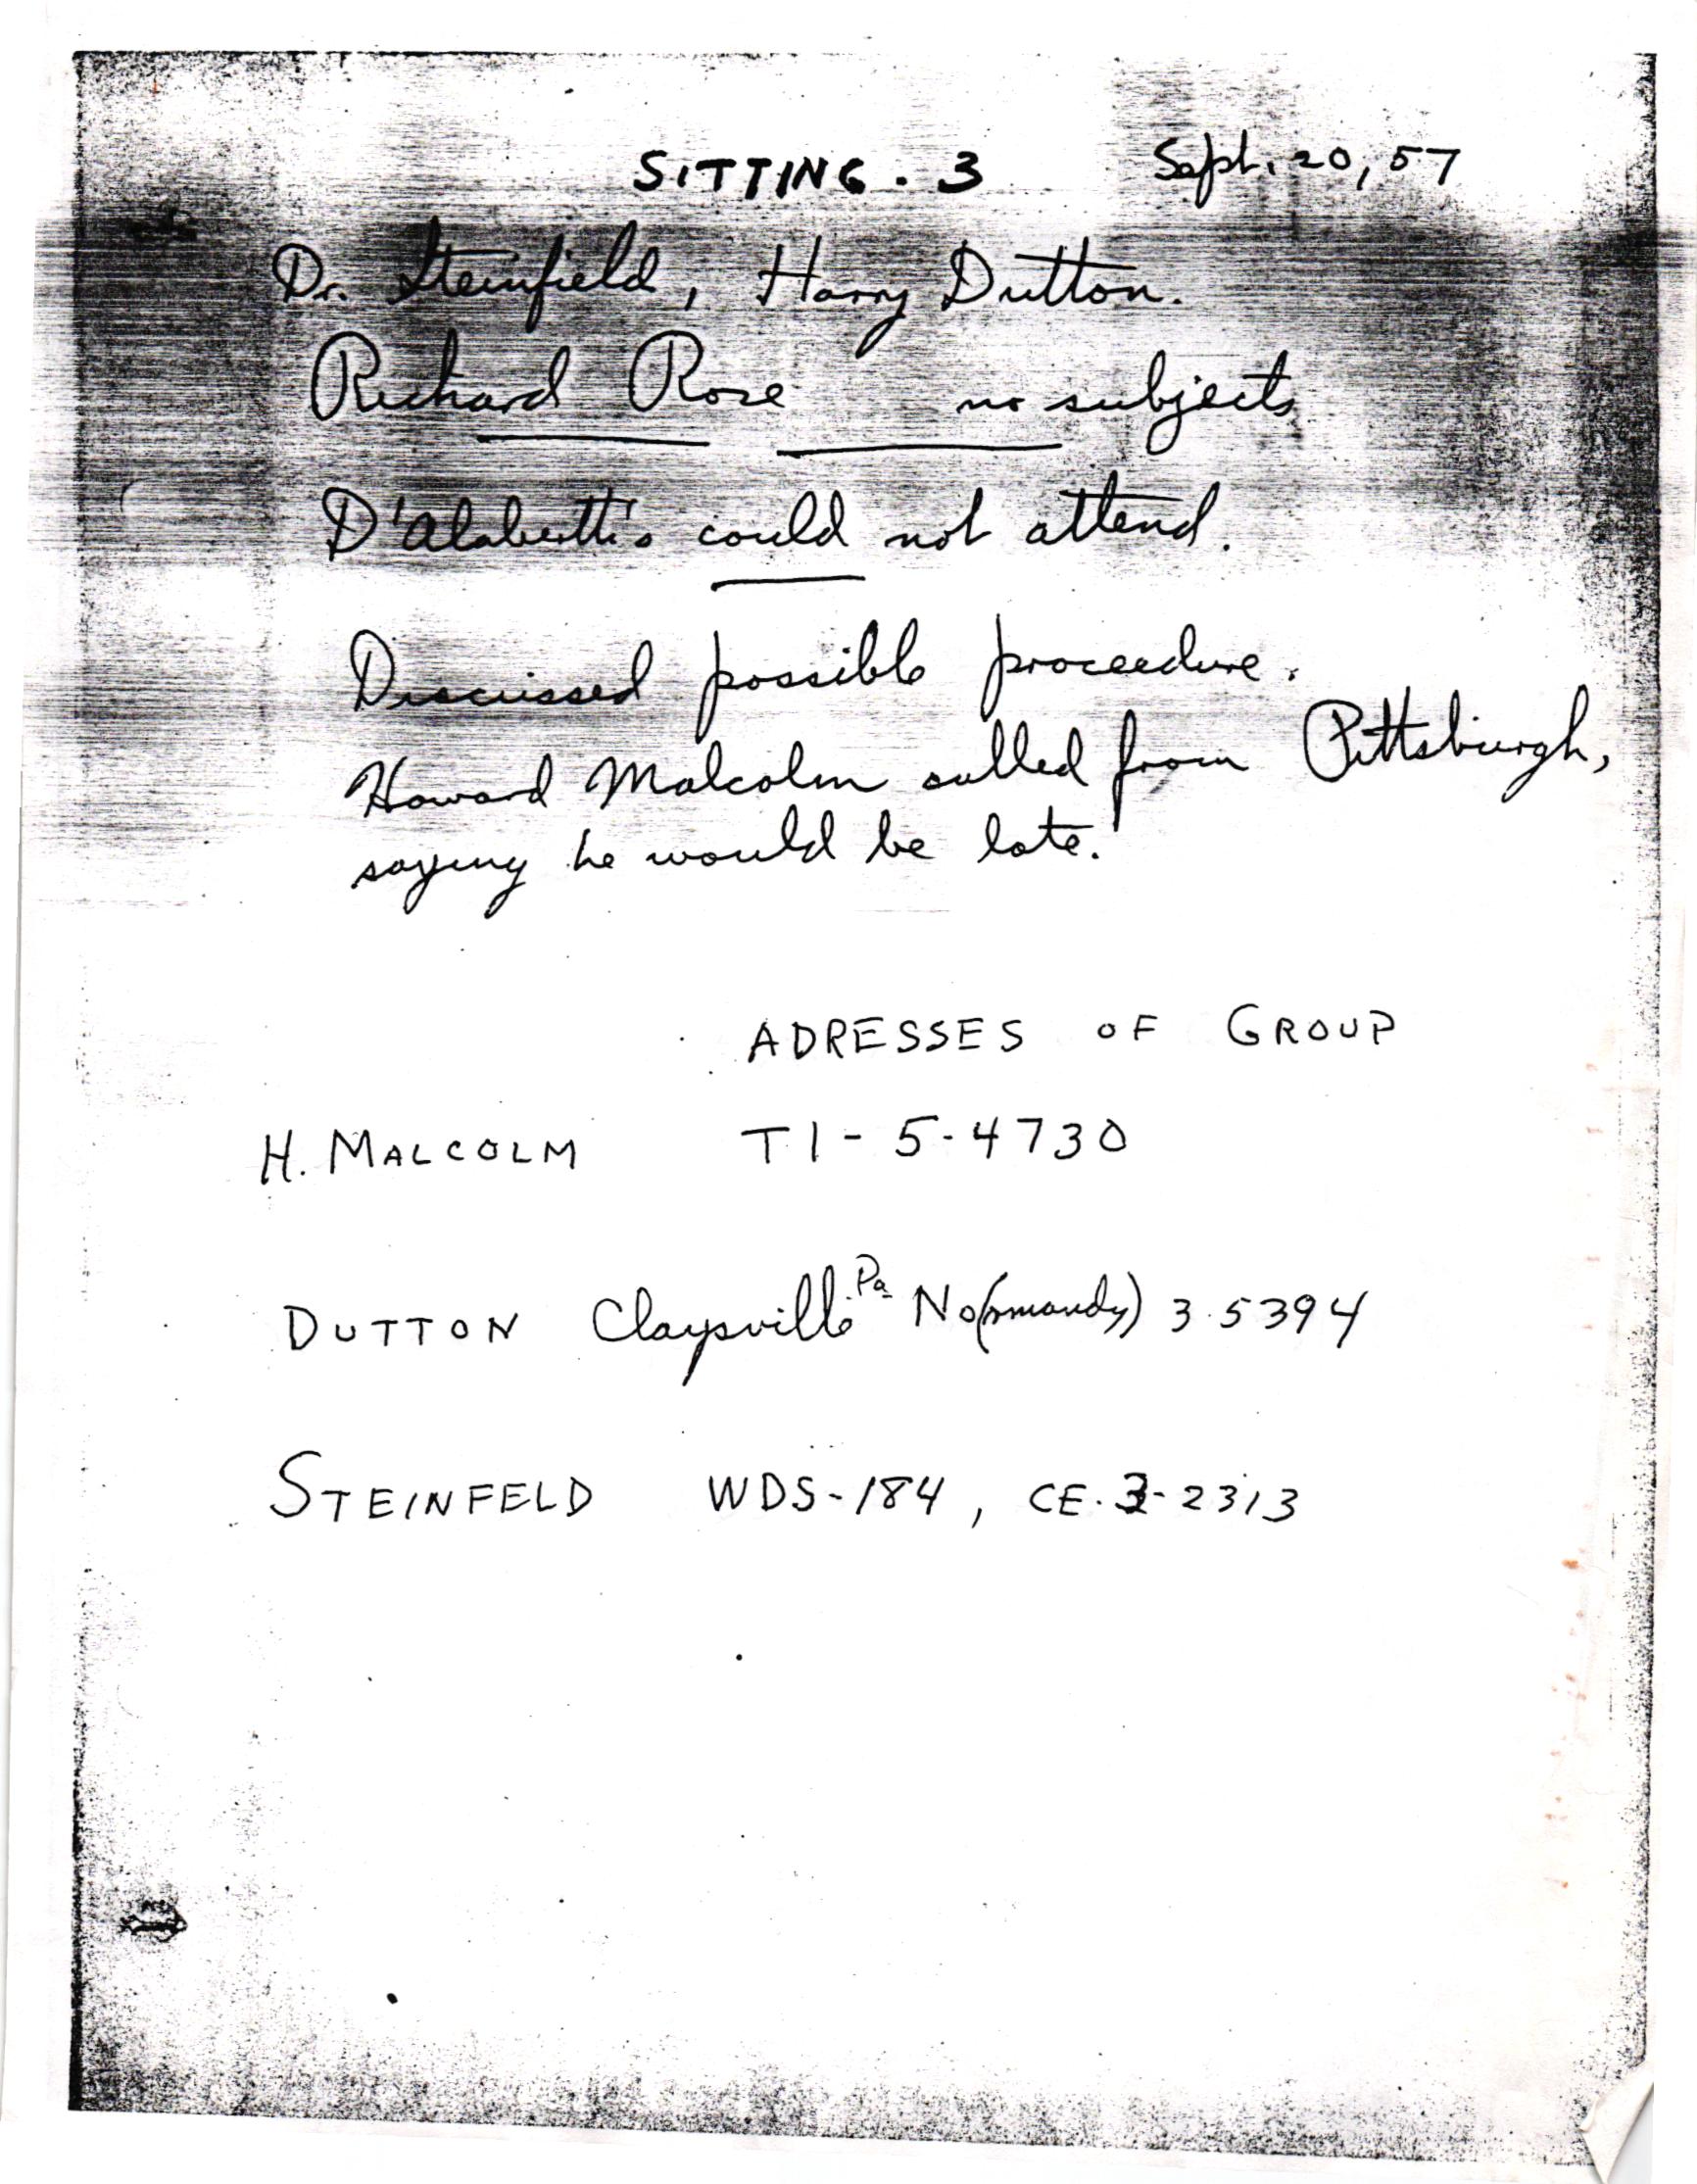 SITTING. 3 Sept. 20, 57
Dr. Steinfield, Harry Dutton.
Richard Rose no subjects
D'Alabertti's could not attend.
Discussed possible proceedure.
Howard Malcolm called from Pittsburgh,
saying he would be late.
ADRESSES OF GROUP
H. MALCOLM TI-5-4730
DUTTON Claysville Pa No(rmandy) 3-5394
STEINFELD WDS-184, CE.3-2313